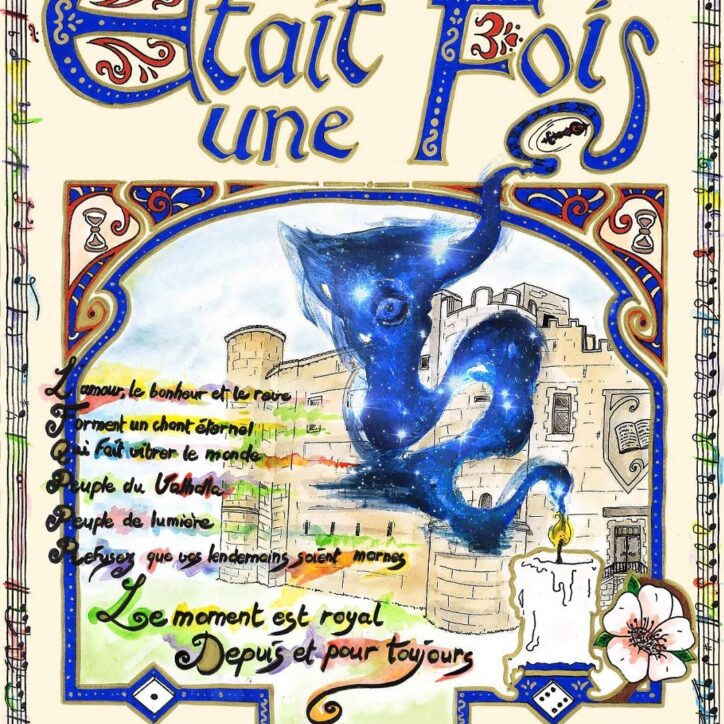 Etait Fois
une
L'amour, le bonheur et le rêve
Forment un chant éternel
Qui fait vibrer le monde
Peuple du Valhalla
Peuple de lumière
Refusez que vos lendemains soient mornes
Le moment est royal
Depuis et pour toujours